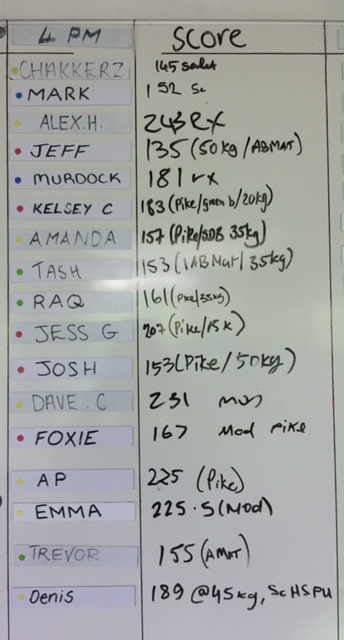 4 PM SCORE
CHAKKERZ 145
MARK 152 Sc
ALEX.H. 243 RX
JEFF 135 (50kg/ABMAT)
MURDOCK 181 rx
KELSEY C 183 (Pike/green b/20kg)
AMANDA 157 (Pike/SDB 35kg)
TASH 153 (1ABMat/35kg)
RAQ 161 (Pike/35kg)
JESS G 207 (Pike/15k)
JOSH 153 (Pike/50kg)
DAVE.C 231
FOXIE 167 Mod pike
AP 225 (Pike)
EMMA 225.5 (Mod)
TREVOR 155 (AMAT)
Denis 189 @45kg, Sc HSPU